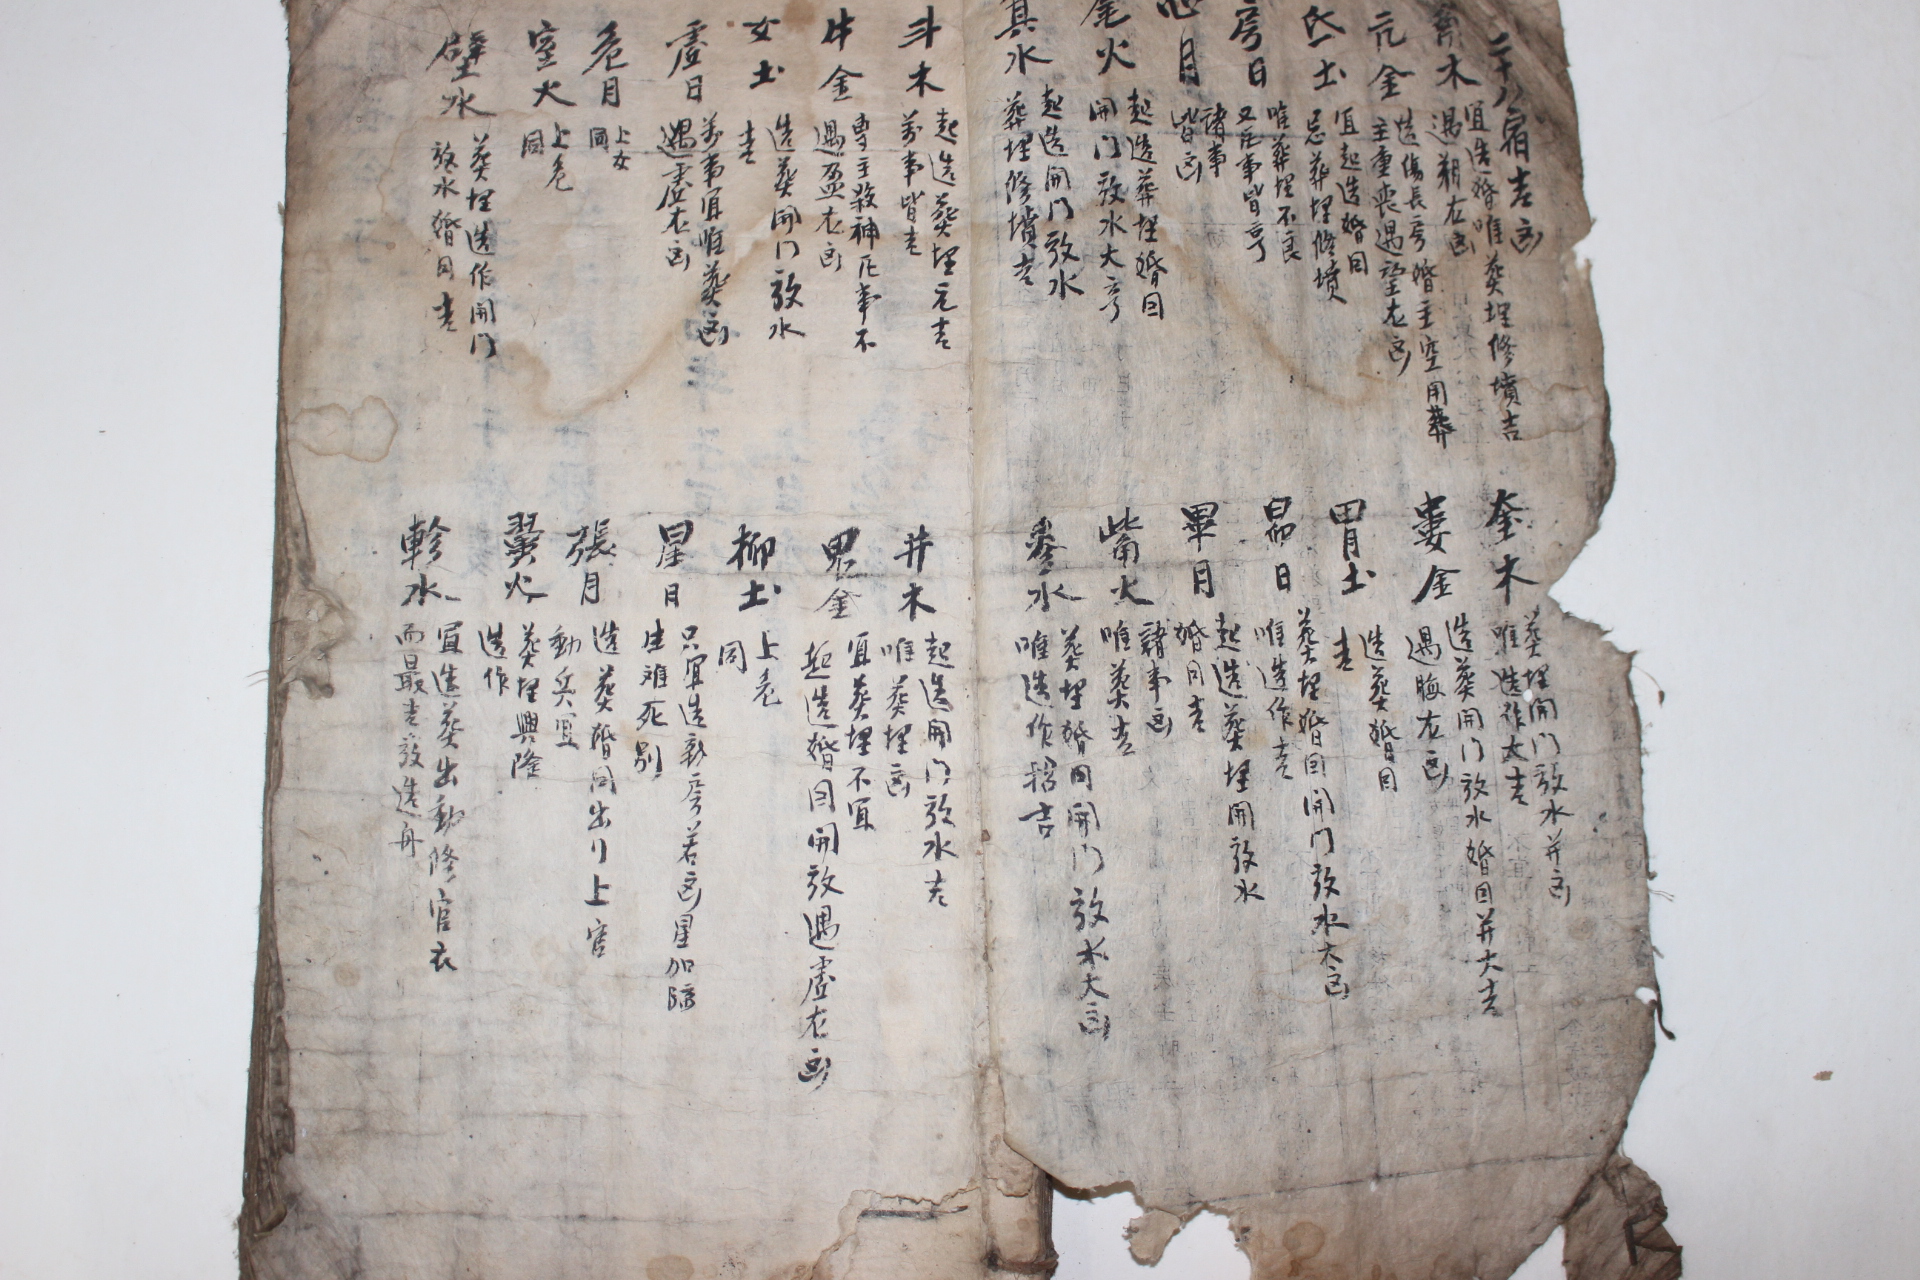 二十八宿吉凶
角木 宜造婚唯葬埋修墳吉
遇朔在凶
亢金 造傷長房婚主空用葬
主重喪遇望在凶
氐土 宜起造婚因
忌葬埋修墳
房日 唯葬埋不良
又凡事皆亨
心月 諸事
皆凶
尾火 起造葬埋婚因
開门放水大亨
箕水 起造開门放水
葬埋修墳吉
斗木 起造葬埋元吉
萬事皆吉
牛金 專主殺神凡事不
遇盈在凶
女土 造葬開门放水
吉
虛日 萬事宜唯葬凶
遇虛在凶
危月 上女
同
室火 上危
同
壁水 葬埋造作開门
放水婚因吉
奎木 葬埋開门放水並凶
唯造作大吉
婁金 造葬開门放水婚因並大吉
遇晦在凶
胃土 造葬婚因
吉
昴日 葬埋婚因開门放水大凶
唯造作吉
畢月 起造葬埋開放水
婚因吉
觜火 諸事凶
唯葬吉
參水 葬埋婚因開门放水大凶
唯造作招吉
井木 起造開门放水吉
唯葬埋凶
鬼金 宜葬埋不宜
起造婚因開放遇虛在凶
柳土 上危
同
星日 只宜造新房若凶星加臨
生难死別
張月 造葬婚因出行上官
動兵宜
翼火 葬埋興隆
造作
軫水 宜造葬出動修官衣
而最吉放造舟